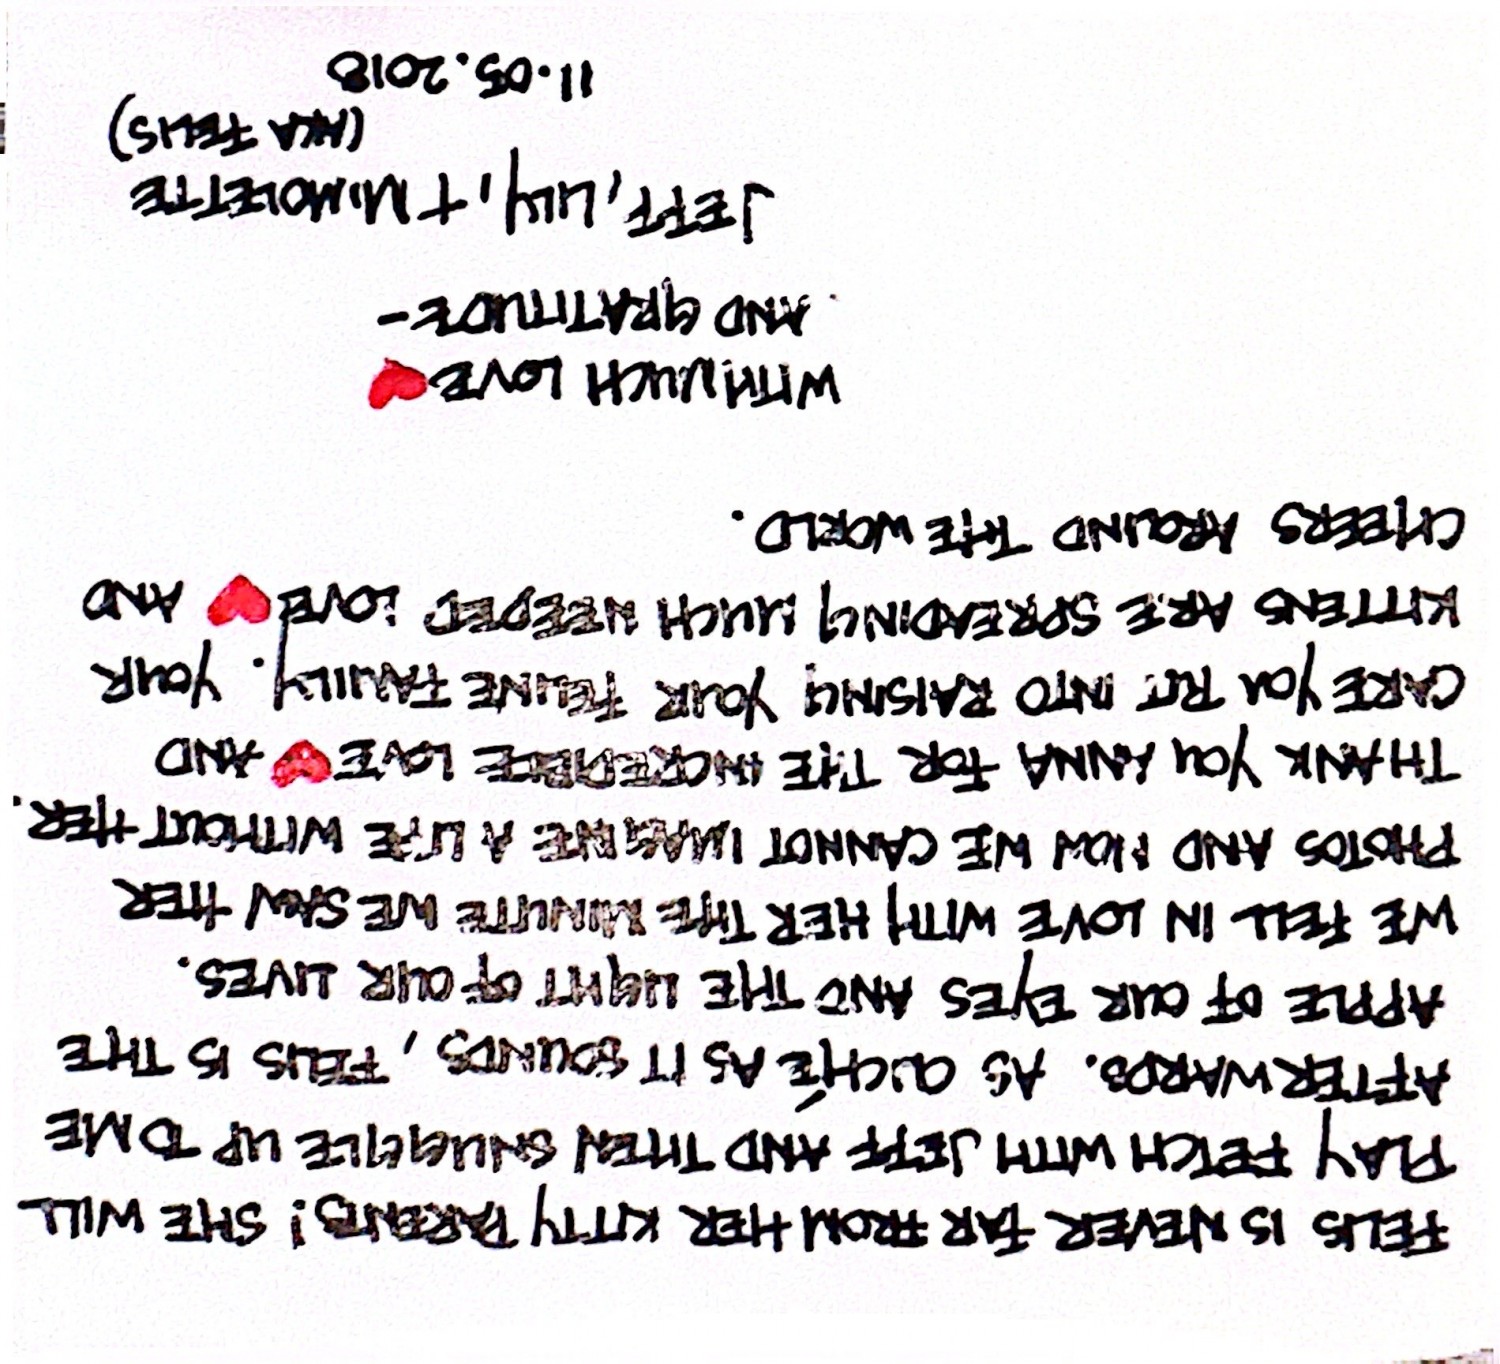 FELIS IS NEVER FAR FROM HER KITTY PARENTS! SHE WILL
PLAY FETCH WITH JEFF AND THEN SNUGGLE UP TO ME
AFTERWARDS. AS CLICHÉ AS IT SOUNDS, FELIS IS THE
APPLE OF OUR EYES AND THE LIGHT OF OUR LIVES.
WE FELL IN LOVE WITH HER THE MINUTE WE SAW HER
PHOTOS AND NOW WE CANNOT IMAGINE A LIFE WITHOUT HER.
THANK YOU ANNA FOR THE INCREDIBLE LOVE ❤ AND
CARE YOU PUT INTO RAISING YOUR FELINE FAMILY. YOUR
KITTENS ARE SPREADING MUCH NEEDED LOVE ❤ AND
CHEERS AROUND THE WORLD.
WITH MUCH LOVE ❤
AND GRATITUDE-
JEFF, LILY, + MIMOLETTE
(AKA FELIS)
11.05.2018